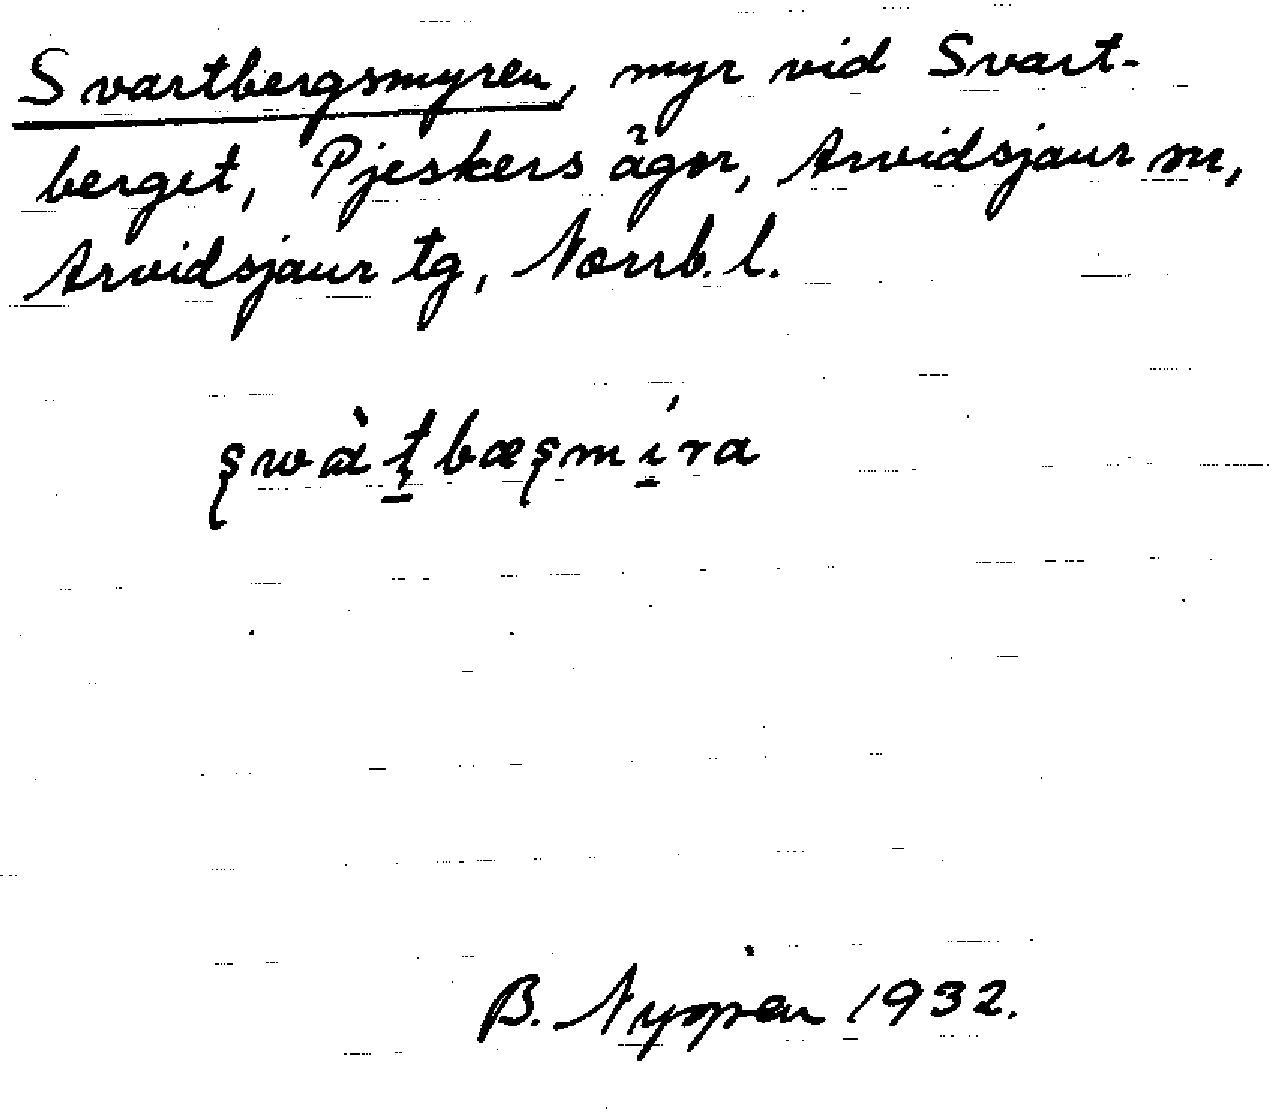 Svartbergsmyren, myr vid Svart-
berget, Pjeskers ägor, Arvidsjaur sn,
Arvidsjaur tg, Norrb. l.
B. Nyopén 1932.